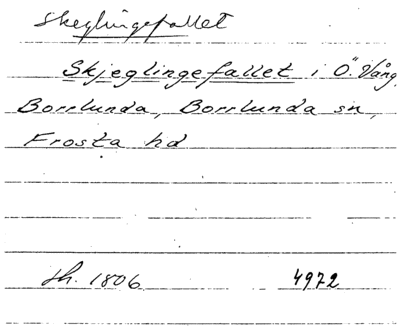 Skeglingefallet
Skjeglingefallet i Ö. Vång,
Borrlunda, Borrlunda sn,
Frosta hd
Sh. 1806 4972